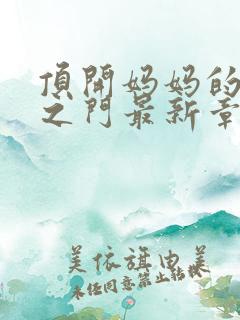 頂開妈妈的
之门最新章
美依旗由美
未经同意禁止转载